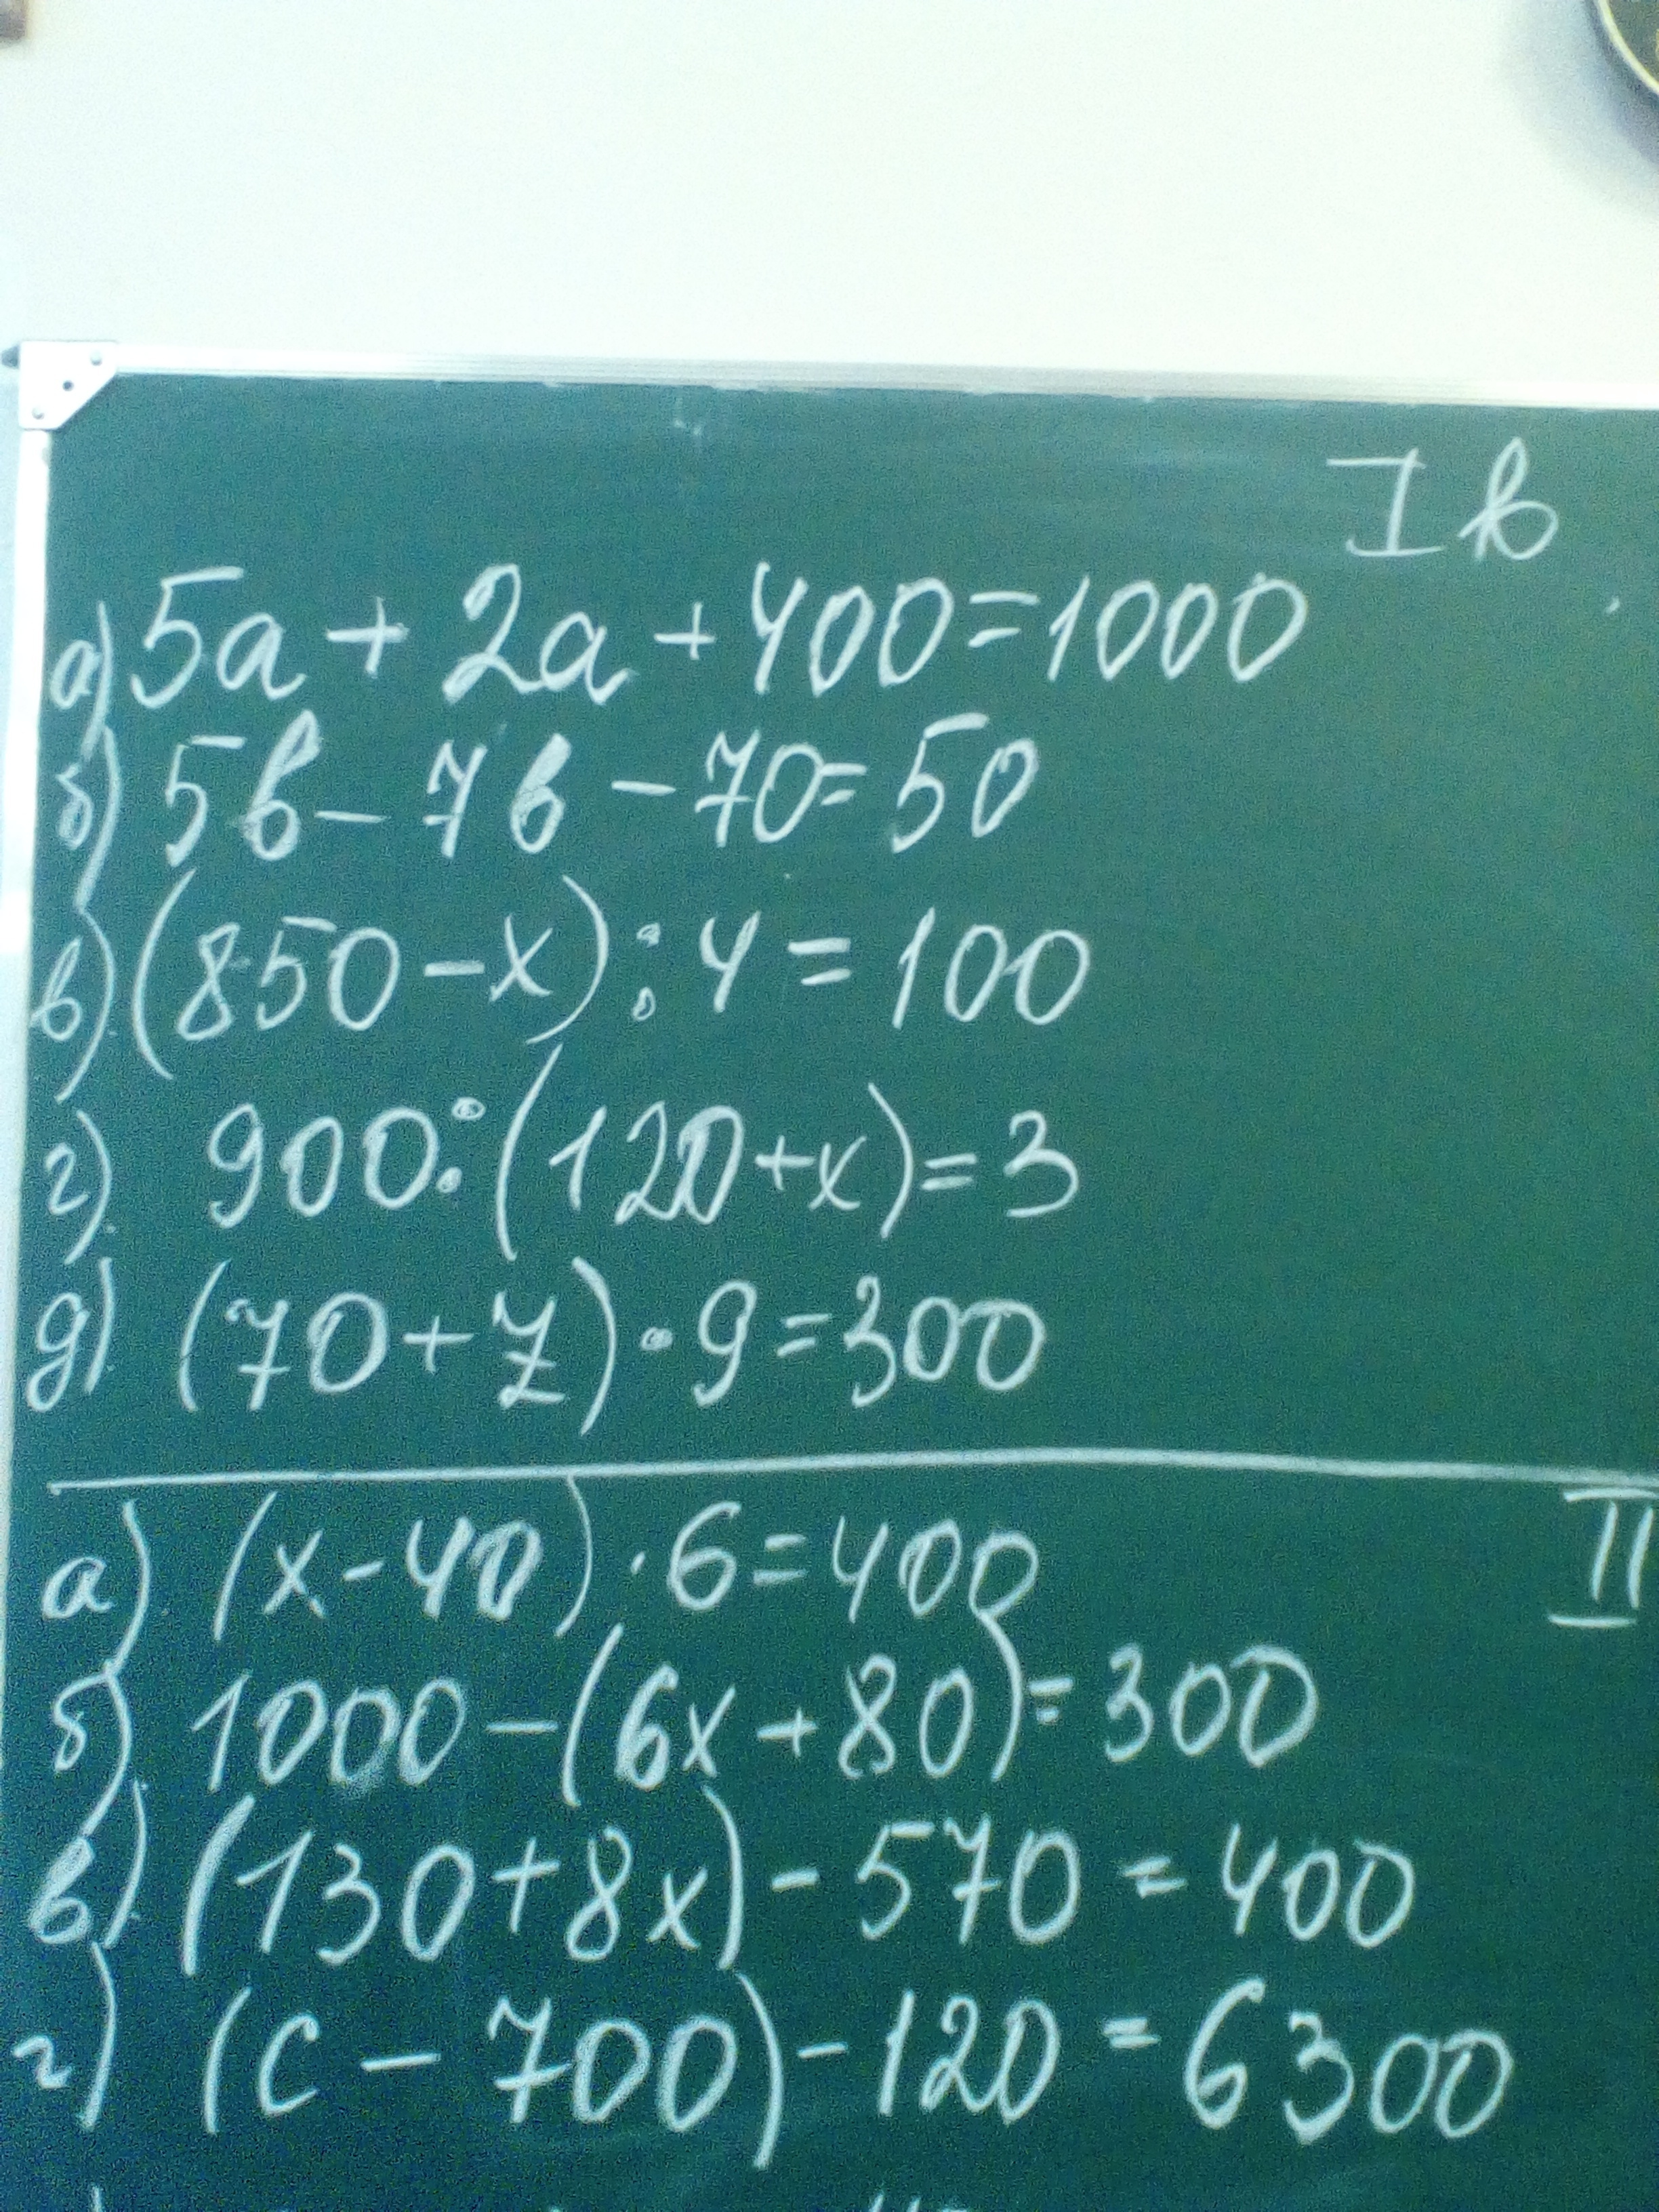 I в
а) 5a + 2a + 400 = 1000
б) 5b - 7b - 70 = 50
в) (850 - x) : 4 = 100
г) 900 : (120 + x) = 3
д) (70 + z) · 9 = 300
II
а) (x - 40) · 6 = 400
б) 1000 - (6x + 80) = 300
в) (130 + 8x) - 570 = 400
г) (c - 700) - 120 = 6300